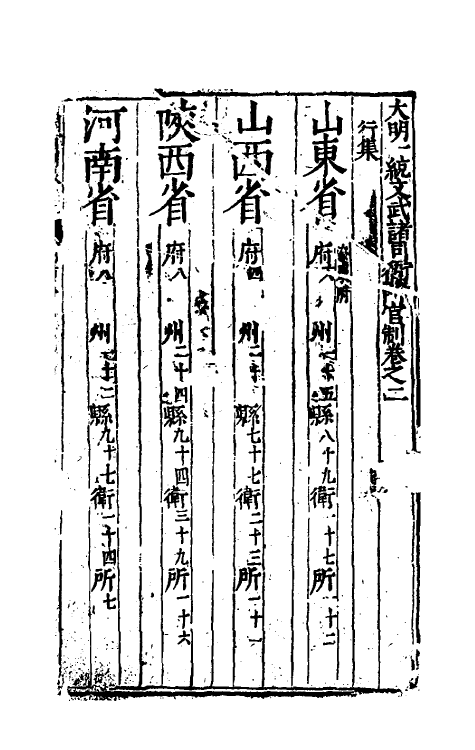 大明一統文武諸司衙門官制卷之二
行集
山東省 府六 州十五 縣八十九 衛十七 所十二
山西省 府四 州二十 縣七十七 衛二十三 所十一
陝西省 府八 州二十四 縣九十四 衛三十九 所十六
河南省 府八 州十二 縣九十七 衛十四 所七